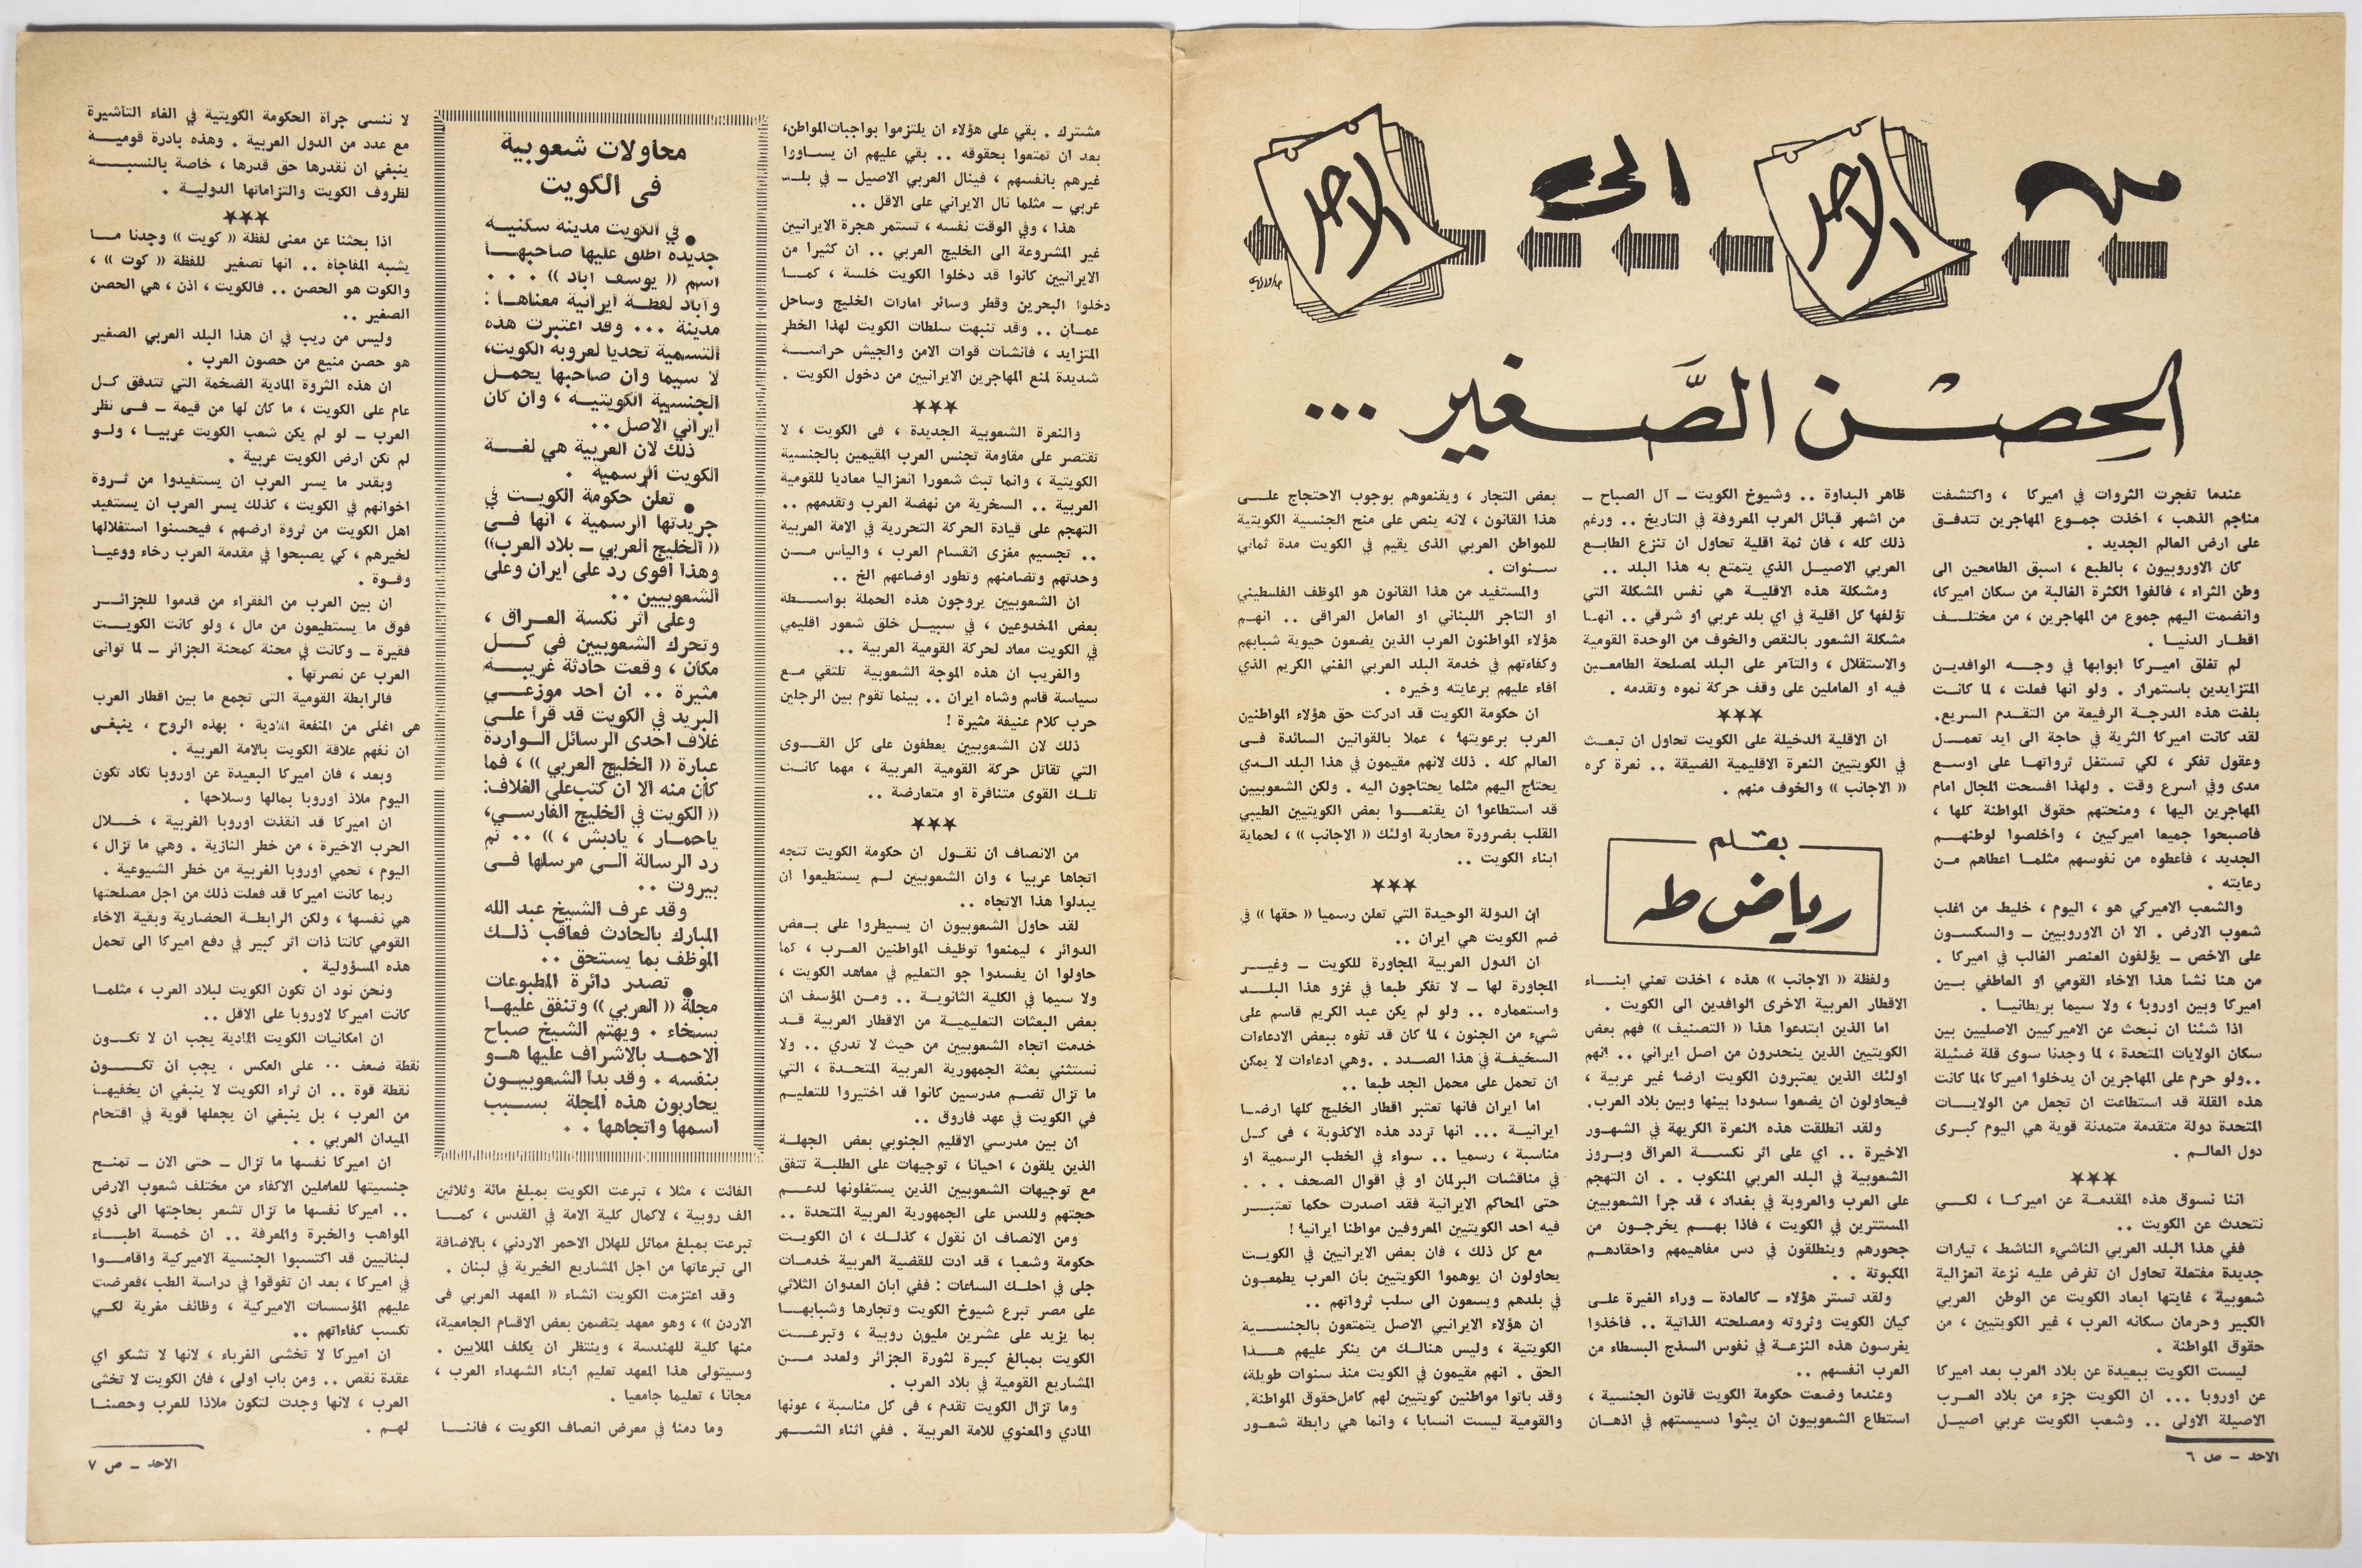 من الاحد الى الاحد
الحِصْن الصَّغير ...
عندما تفجرت الثروات في اميركا ، واكتشفت
مناجم الذهب ، اخذت جموع المهاجرين تتدفق
على ارض العالم الجديد .
كان الاوروبيون ، بالطبع ، اسبق الطامحين الى
وطن الثراء ، فالفوا الكثرة الغالبة من سكان اميركا،
وانضمت اليهم جموع من المهاجرين ، من مختلف
اقطار الدنيا .
لم تغلق اميركا ابوابها في وجه الوافدين
المتزايدين باستمرار . ولو انها فعلت ، لما كانت
بلغت هذه الدرجة الرفيعة من التقدم السريع.
لقد كانت اميركا الثرية في حاجة الى ايد تعمل
وعقول تفكر ، لكي تستغل ثرواتها على اوسع
مدى وفي اسرع وقت . ولهذا افسحت المجال امام
المهاجرين اليها ، ومنحتهم حقوق المواطنة كلها ،
فاصبحوا جميعا اميركيين ، واخلصوا لوطنهم
الجديد ، فأعطوه من نفوسهم مثلما اعطاهم من
رعايته .
والشعب الاميركي هو ، اليوم ، خليط من اغلب
شعوب الارض . الا ان الاوروبيين – والسكسون
على الاخص – يؤلفون العنصر الغالب في اميركا .
من هنا نشأ هذا الاخاء القومي او العاطفي بين
اميركا وبين اوروبا ، ولا سيما بريطانيا .
اذا شئنا ان نبحث عن الاميركيين الاصليين بين
سكان الولايات المتحدة ، لما وجدنا سوى قلة ضئيلة
..ولو حرم على المهاجرين ان يدخلوا اميركا ،لما كانت
هذه القلة قد استطاعت ان تجعل من الولايات
المتحدة دولة متقدمة متمدنة قوية هي اليوم كبرى
دول العالم .
★★★
اننا نسوق هذه المقدمة عن اميركا ، لكي
نتحدث عن الكويت ..
ففي هذا البلد العربي الناشيء الناشط ، تيارات
جديدة مفتعلة تحاول ان تفرض عليه نزعة انعزالية
شعوبية ، غايتها ابعاد الكويت عن الوطن العربي
الكبير وحرمان سكانه العرب ، غير الكويتيين ، من
حقوق المواطنة .
ليست الكويت ببعيدة عن بلاد العرب بعد اميركا
عن اوروبا ... ان الكويت جزء من بلاد العرب
الاصيلة الاولى .. وشعب الكويت عربي اصيل
الاحد – ص ٦
ظاهر البداوة .. وشيوخ الكويت – آل الصباح –
من اشهر قبائل العرب المعروفة في التاريخ .. ورغم
ذلك كله ، فان ثمة اقلية تحاول ان تنزع الطابع
العربي الاصيل الذي يتمتع به هذا البلد ..
ومشكلة هذه الاقلية هي نفس المشكلة التي
تؤلفها كل اقلية في اي بلد عربي او شرقي .. انها
مشكلة الشعور بالنقص والخوف من الوحدة القومية
والاستقلال ، والتآمر على البلد لمصلحة الطامعين
فيه او العاملين على وقف حركة نموه وتقدمه .
★★★
ان الاقلية الدخيلة على الكويت تحاول ان تبعث
في الكويتيين النعرة الاقليمية الضيقة .. نعرة كره
« الاجانب » والخوف منهم .
بقلم
رياض طه
ولفظة « الاجانب » هذه ، اخذت تعني ابناء
الاقطار العربية الاخرى الوافدين الى الكويت .
اما الذين ابتدعوا هذا « التصنيف » فهم بعض
الكويتيين الذين ينحدرون من اصل ايراني .. انهم
اولئك الذين يعتبرون الكويت ارضا غير عربية ،
فيحاولون ان يضعوا سدودا بينها وبين بلاد العرب.
ولقد انطلقت هذه النعرة الكريهة في الشهور
الاخيرة .. اي على اثر نكسة العراق وبروز
الشعوبية في البلد العربي المنكوب . . ان التهجم
على العرب والعروبة في بغداد ، قد جرأ الشعوبيين
المستترين في الكويت ، فاذا بهم يخرجون من
جحورهم وينطلقون في دس مفاهيمهم واحقادهم
المكبوتة . .
ولقد تستر هؤلاء – كالعادة – وراء الغيرة على
كيان الكويت وثروته ومصلحته الذاتية .. فأخذوا
يغرسون هذه النزعة في نفوس السذج البسطاء من
العرب انفسهم ..
وعندما وضعت حكومة الكويت قانون الجنسية ،
استطاع الشعوبيون ان يبثوا دسيستهم في اذهان
بعض التجار ، ويقنعوهم بوجوب الاحتجاج على
هذا القانون ، لانه ينص على منح الجنسية الكويتية
للمواطن العربي الذى يقيم في الكويت مدة ثماني
سنوات .
والمستفيد من هذا القانون هو الموظف الفلسطيني
او التاجر اللبناني او العامل العراقى .. انهم
هؤلاء المواطنون العرب الذين يضعون حيوية شبابهم
وكفاءتهم في خدمة البلد العربي الغني الكريم الذي
أفاء عليهم برعايته وخيره .
ان حكومة الكويت قد ادركت حق هؤلاء المواطنين
العرب برعويتها ، عملا بالقوانين السائدة فى
العالم كله . ذلك لانهم مقيمون في هذا البلد الذي
يحتاج اليهم مثلما يحتاجون اليه . ولكن الشعوبيين
قد استطاعوا ان يقنعوا بعض الكويتيين الطيبي
القلب بضرورة محاربة اولئك « الاجانب » ، لحماية
ابناء الكويت ..
★★★
ان الدولة الوحيدة التي تعلن رسميا « حقها » في
ضم الكويت هي ايران ..
ان الدول العربية المجاورة للكويت – وغير
المجاورة لها – لا تفكر طبعا في غزو هذا البلد
واستعماره .. ولو لم يكن عبد الكريم قاسم على
شيء من الجنون ، لما كان قد تفوه ببعض الادعاءات
السخيفة في هذا الصدد . .وهي ادعاءات لا يمكن
ان تحمل على محمل الجد طبعا ..
اما ايران فانها تعتبر اقطار الخليج كلها ارضا
ايرانية ... انها تردد هذه الاكذوبة ، فى كل
مناسبة ، رسميا .. سواء في الخطب الرسمية او
في مناقشات البرلمان او في اقوال الصحف . . .
حتى المحاكم الايرانية فقد اصدرت حكما تعتبر
فيه احد الكويتيين المعروفين مواطنا ايرانيا !
مع كل ذلك ، فان بعض الايرانيين في الكويت
يحاولون ان يوهموا الكويتيين بأن العرب يطمعون
في بلدهم ويسعون الى سلب ثرواتهم ..
ان هؤلاء الايرانيي الاصل يتمتعون بالجنسية
الكويتية ، وليس هنالك من ينكر عليهم هذا
الحق . انهم مقيمون في الكويت منذ سنوات طويلة،
وقد باتوا مواطنين كويتيين لهم كامل حقوق المواطنة.
والقومية ليست انسابا ، وانما هي رابطة شعور
مشترك . بقي على هؤلاء ان يلتزموا بواجبات المواطن،
بعد ان تمتعوا بحقوقه .. بقي عليهم ان يساورا
غيرهم بانفسهم ، فينال العربي الاصيل – في بلد
عربي – مثلما نال الايراني على الاقل ..
هذا ، وفي الوقت نفسه ، تستمر هجرة الايرانيين
غير المشروعة الى الخليج العربي .. ان كثيرا من
الايرانيين كانوا قد دخلوا الكويت خلسة ، كما
دخلوا البحرين وقطر وسائر امارات الخليج وساحل
عمان .. وقد تنبهت سلطات الكويت لهذا الخطر
المتزايد ، فأنشأت قوات الامن والجيش حراسة
شديدة لمنع المهاجرين الايرانيين من دخول الكويت .
★★★
والنعرة الشعوبية الجديدة ، فى الكويت ، لا
تقتصر على مقاومة تجنس العرب المقيمين بالجنسية
الكويتية ، وانما تبث شعورا انعزاليا معاديا للقومية
العربية .. السخرية من نهضة العرب وتقدمهم ..
التهجم على قيادة الحركة التحررية في الامة العربية
.. تجسيم مغزى انقسام العرب ، والياس من
وحدتهم وتضامنهم وتطور اوضاعهم الخ ..
ان الشعوبيين يروجون هذه الحملة بواسطة
بعض المخدوعين ، في سبيل خلق شعور اقليمي
في الكويت معاد لحركة القومية العربية ..
والغريب ان هذه الموجة الشعوبية تلتقي مع
سياسة قاسم وشاه ايران .. بينما تقوم بين الرجلين
حرب كلام عنيفة مثيرة !
ذلك لان الشعوبيين يعطفون على كل القوى
التي تقاتل حركة القومية العربية ، مهما كانت
تلك القوى متنافرة او متعارضة ..
★★★
من الانصاف ان نقول ان حكومة الكويت تتجه
اتجاها عربيا ، وان الشعوبيين لم يستطيعوا ان
يبدلوا هذا الاتجاه ..
لقد حاول الشعوبيون ان يسيطروا على بعض
الدوائر ، ليمنعوا توظيف المواطنين العرب ، كما
حاولوا ان يفسدوا جو التعليم في معاهد الكويت ،
ولا سيما في الكلية الثانوية .. ومن المؤسف ان
بعض البعثات التعليمية من الاقطار العربية قد
خدمت اتجاه الشعوبيين من حيث لا تدري .. ولا
نستثني بعثة الجمهورية العربية المتحدة ، التي
ما تزال تضم مدرسين كانوا قد اختيروا للتعليم
في الكويت في عهد فاروق ..
ان بين مدرسي الاقليم الجنوبي بعض الجهلة
الذين يلقون ، احيانا ، توجيهات على الطلبة تتفق
مع توجيهات الشعوبيين الذين يستغلونها لدعم
حجتهم وللدس على الجمهورية العربية المتحدة ..
ومن الانصاف ان نقول ، كذلك ، ان الكويت
حكومة وشعبا ، قد ادت للقضية العربية خدمات
جلى في احلك الساعات : ففي ابان العدوان الثلاثي
على مصر تبرع شيوخ الكويت وتجارها وشبابها
بما يزيد على عشرين مليون روبية ، وتبرعت
الكويت بمبالغ كبيرة لثورة الجزائر ولعدد من
المشاريع القومية في بلاد العرب .
وما تزال الكويت تقدم ، فى كل مناسبة ، عونها
المادي والمعنوي للامة العربية . ففي اثناء الشهر
محاولات شعوبية
فى الكويت
• في الكويت مدينة سكنية
جديدة اطلق عليها صاحبها
اسم « يوسف آباد » . . .
وآباد لفظة ايرانية معناها :
مدينة ... وقد اعتبرت هذه
التسمية تحديا لعروبة الكويت،
لا سيما وان صاحبها يحمل
الجنسية الكويتية ، وان كان
ايراني الاصل ..
ذلك لان العربية هي لغة
الكويت الرسمية .
• تعلن حكومة الكويت في
جريدتها الرسمية ، انها فى
« الخليج العربي – بلاد العرب»
وهذا اقوى رد على ايران وعلى
الشعوبيين ..
وعلى اثر نكسة العراق ،
وتحرك الشعوبيين في كل
مكان ، وقعت حادثة غريبة
مثيرة .. ان احد موزعي
البريد في الكويت قد قرأ على
غلاف احدى الرسائل الواردة
عبارة « الخليج العربي » ، فما
كان منه الا ان كتب على الغلاف:
« الكويت في الخليج الفارسي،
ياحمار ، يادبش ، » .. ثم
رد الرسالة الى مرسلها فى
بيروت ..
وقد عرف الشيخ عبد الله
المبارك بالحادث فعاقب ذلك
الموظف بما يستحق ..
• تصدر دائرة المطبوعات
مجلة « العربي » وتنفق عليها
بسخاء . ويهتم الشيخ صباح
الاحمد بالاشراف عليها هو
بنفسه . وقد بدأ الشعوبيون
يحاربون هذه المجلة بسبب
اسمها واتجاهها . .
الفائت ، مثلا ، تبرعت الكويت بمبلغ مائة وثلاثين
الف روبية ، لاكمال كلية الامة في القدس ، كما
تبرعت بمبلغ مماثل للهلال الاحمر الاردني ، بالاضافة
الى تبرعاتها من اجل المشاريع الخيرية في لبنان .
وقد اعتزمت الكويت انشاء « المعهد العربي فى
الاردن » ، وهو معهد يتضمن بعض الاقسام الجامعية،
منها كلية للهندسة ، وينتظر ان يكلف الملايين .
وسيتولى هذا المعهد تعليم ابناء الشهداء العرب ،
مجانا ، تعليما جامعيا .
وما دمنا في معرض انصاف الكويت ، فاننا
لا ننسى جرأة الحكومة الكويتية في الغاء التأشيرة
مع عدد من الدول العربية . وهذه بادرة قومية
ينبغي ان نقدرها حق قدرها ، خاصة بالنسبة
لظروف الكويت والتزاماتها الدولية .
★★★
اذا بحثنا عن معنى لفظة « كويت » وجدنا ما
يشبه المفاجأة .. انها تصغير للفظة « كوت » ،
والكوت هو الحصن .. فالكويت ، اذن ، هي الحصن
الصغير ..
وليس من ريب في ان هذا البلد العربي الصغير
هو حصن منيع من حصون العرب .
ان هذه الثروة المادية الضخمة التي تتدفق كل
عام على الكويت ، ما كان لها من قيمة – فى نظر
العرب – لو لم يكن شعب الكويت عربيا ، ولو
لم تكن ارض الكويت عربية .
وبقدر ما يسر العرب ان يستفيدوا من ثروة
اخوانهم في الكويت ، كذلك يسر العرب ان يستفيد
اهل الكويت من ثروة ارضهم ، فيحسنوا استغلالها
لخيرهم ، كي يصبحوا في مقدمة العرب رخاء ووعيا
وقوة .
ان بين العرب من الفقراء من قدموا للجزائر
فوق ما يستطيعون من مال ، ولو كانت الكويت
فقيرة – وكانت في محنة كمحنة الجزائر – لما توانى
العرب عن نصرتها .
فالرابطة القومية التى تجمع ما بين اقطار العرب
هى اغلى من المنفعة المادية . بهذه الروح ، ينبغى
ان نفهم علاقة الكويت بالامة العربية .
وبعد ، فان اميركا البعيدة عن اوروبا تكاد تكون
اليوم ملاذ اوروبا بمالها وسلاحها .
ان اميركا قد انقذت اوروبا الغربية ، خلال
الحرب الاخيرة ، من خطر النازية . وهي ما تزال ،
اليوم ، تحمي اوروبا الغربية من خطر الشيوعية .
ربما كانت اميركا قد فعلت ذلك من اجل مصلحتها
هي نفسها ، ولكن الرابطة الحضارية وبقية الاخاء
القومي كانتا ذات اثر كبير في دفع اميركا الى تحمل
هذه المسؤولية .
ونحن نود ان تكون الكويت لبلاد العرب ، مثلما
كانت اميركا لاوروبا على الاقل ..
ان امكانيات الكويت المادية يجب ان لا تكون
نقطة ضعف .. على العكس . يجب ان تكون
نقطة قوة .. ان ثراء الكويت لا ينبغي ان يخفيها
من العرب ، بل ينبغي ان يجعلها قوية في اقتحام
الميدان العربي . .
ان اميركا نفسها ما تزال – حتى الان – تمنح
جنسيتها للعاملين الاكفاء من مختلف شعوب الارض
.. اميركا نفسها ما تزال تشعر بحاجتها الى ذوي
المواهب والخبرة والمعرفة .. ان خمسة اطباء
لبنانيين قد اكتسبوا الجنسية الاميركية واقاموا
في اميركا ، بعد ان تفوقوا في دراسة الطب ،فعرضت
عليهم المؤسسات الاميركية ، وظائف مغرية لكي
تكسب كفاءاتهم ..
ان اميركا لا تخشى الغرباء ، لانها لا تشكو اي
عقدة نقص .. ومن باب اولى ، فان الكويت لا تخشى
العرب ، لانها وجدت لتكون ملاذا للعرب وحصنا
لهم .
الاحد – ص ٧